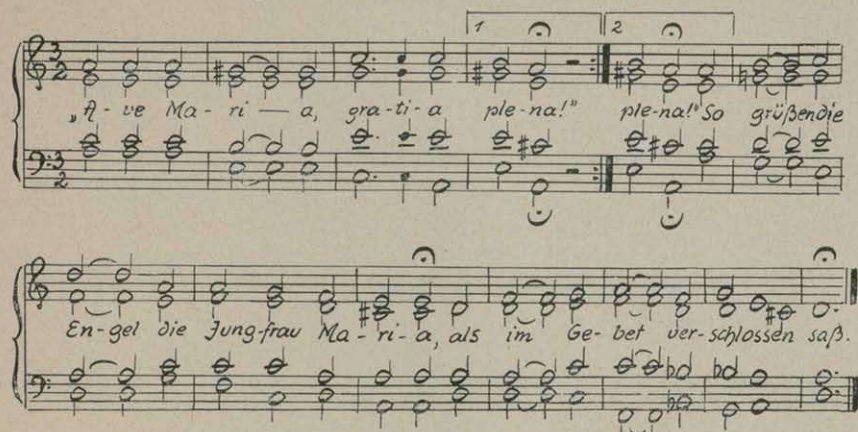 1 2
3 2
„A-ve Ma-ri — a, gra-ti-a ple-na!" ple-na!" So grüßen die
3 2
En-gel die Jung-frau Ma-ri-a, als im Ge-bet ver-schlossen saß.